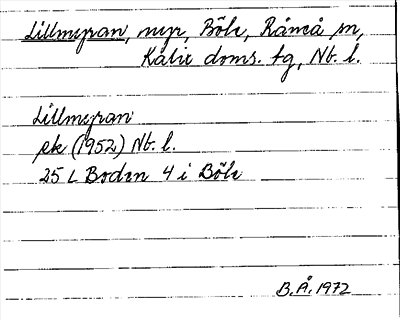 Lillmyran, myr, Böle, Råneå sn,
Kalix doms. tg, Nb. l.
Lillmyran
ek (1952) Nb. l.
25 L Boden 4 i Böle
B.Å. 1972